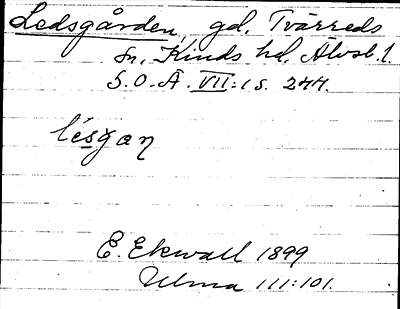 Ledsgården, gd, Tvärreds
sn, Kinds hd, Älvsb. l.
S.O.Ä. VII:1 s. 244.
E. Ekwall 1899
Ulma 111:101.